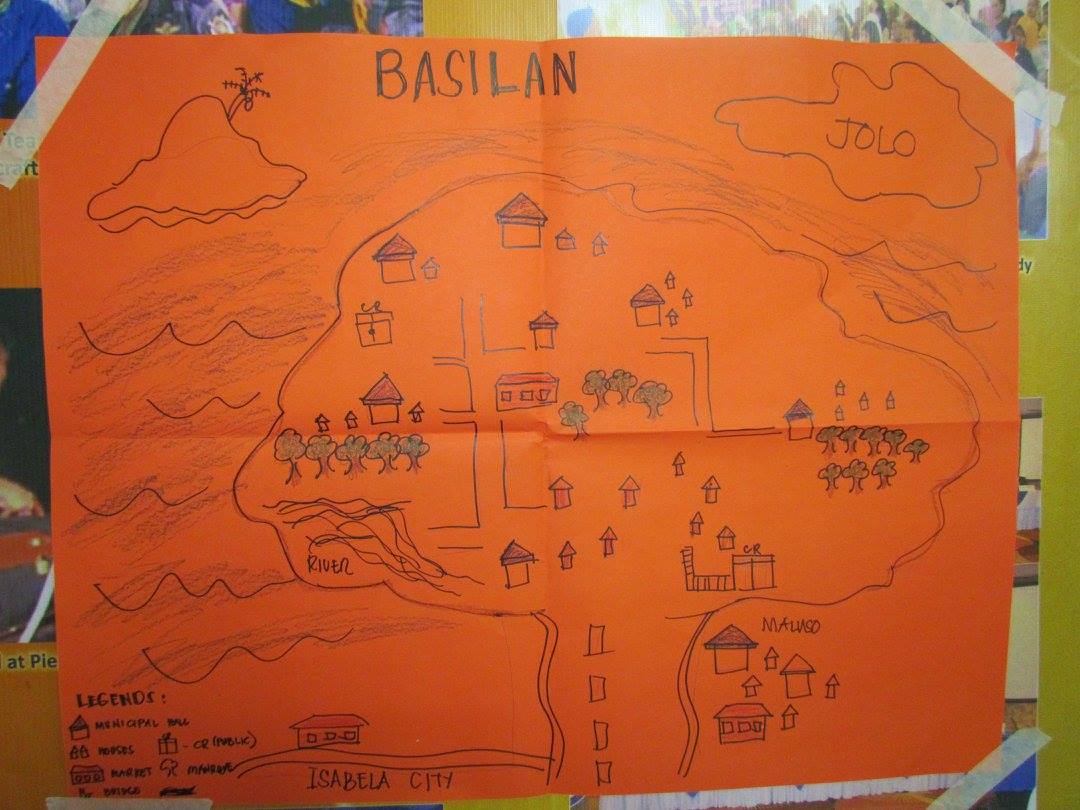 BASILAN
JOLO
CR
RIVER
CR
MALUSO
LEGENDS:
MUNICIPAL HALL
HOUSES
- CR (PUBLIC)
MARKET
BRIDGE
ISABELA CITY
at Pie
craft
dy